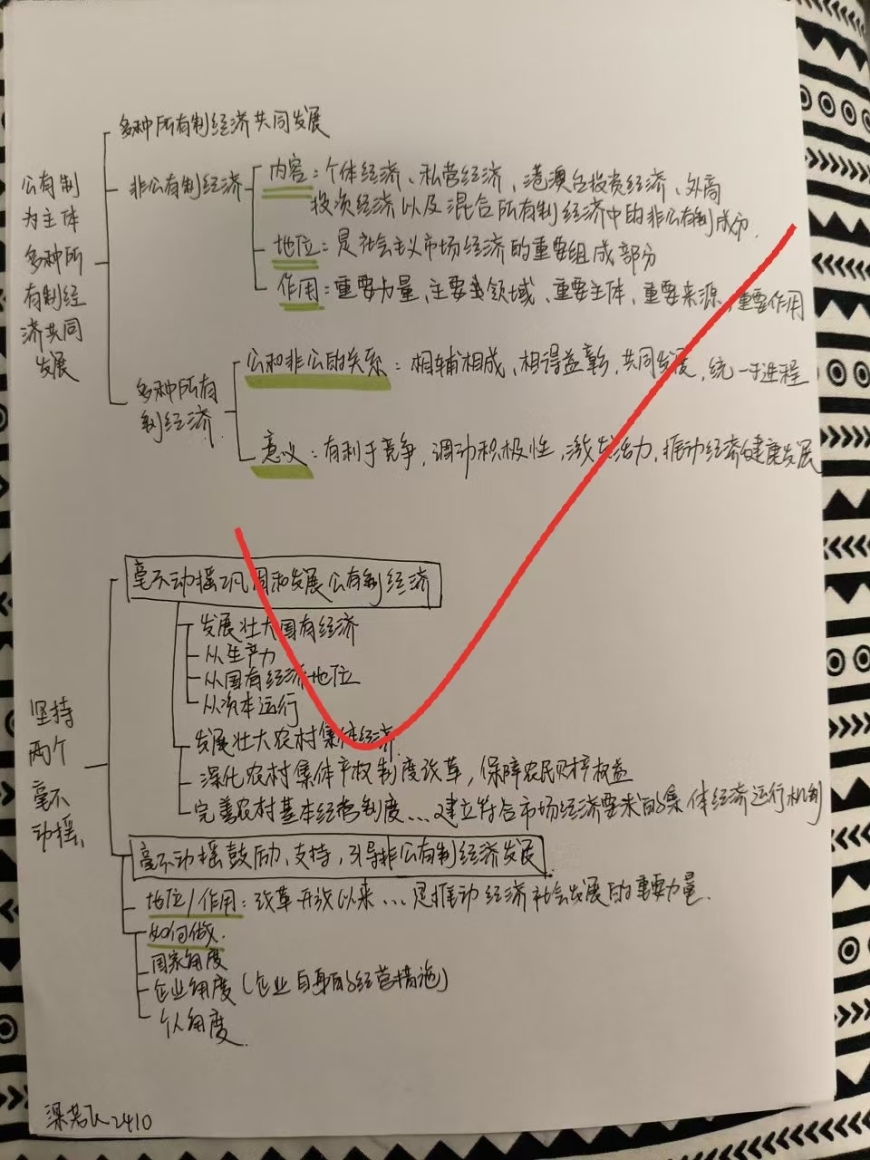 公有制
为主体
多种所
有制经
济共同
发展
多种所有制经济共同发展
非公有制经济
内容:个体经济、私营经济、港澳台投资经济、外商
投资经济以及混合所有制经济中的非公有制成分.
地位:是社会主义市场经济的重要组成部分
作用:重要力量、主要领域、重要主体、重要来源、重要作用
多种所有
制经济.
公和非公的关系:相辅相成、相得益彰、共同发展,统一于进程
意义:有利于竞争,调动积极性,激发活力,振动经济健康发展
坚持
两个
毫不
动摇、
毫不动摇巩固和发展公有制经济
发展壮大国有经济
从生产力
从国有经济地位
从资本运行
发展壮大农村集体经济.
深化农村集体产权制度改革,保障农民财产权益
完善农村基本经营制度...建立符合市场经济要求的集体经济运行机制
毫不动摇鼓励、支持,引导非公有制经济发展
地位/作用:改革开放以来...是推动经济社会发展的重要力量.
如何做.
国家角度
企业角度(企业自身的经营措施)
个人角度.
2410